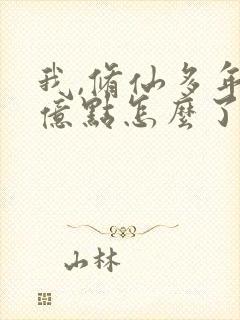 我,脩仙多年
億點怎麼了
山林